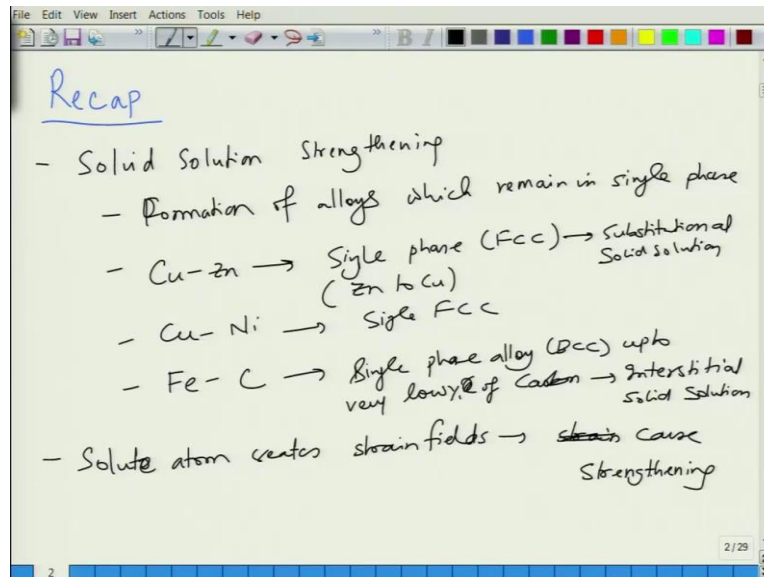 File Edit View Insert Actions Tools Help
B I
Recap
- Solid Solution Strengthening
- Formation of alloys which remain in single phase
- Cu-Zn → Sigle phase (FCC) → Substitutional
Solid Solution
( Zn to Cu)
- Cu-Ni → Sigle FCC
- Fe-C → Single phase alloy (BCC) upto
very low % of Carbon → Interstitial
Solid Solution
- Solute atom creates strain fields → strain cause
Strengthening
2/29
2